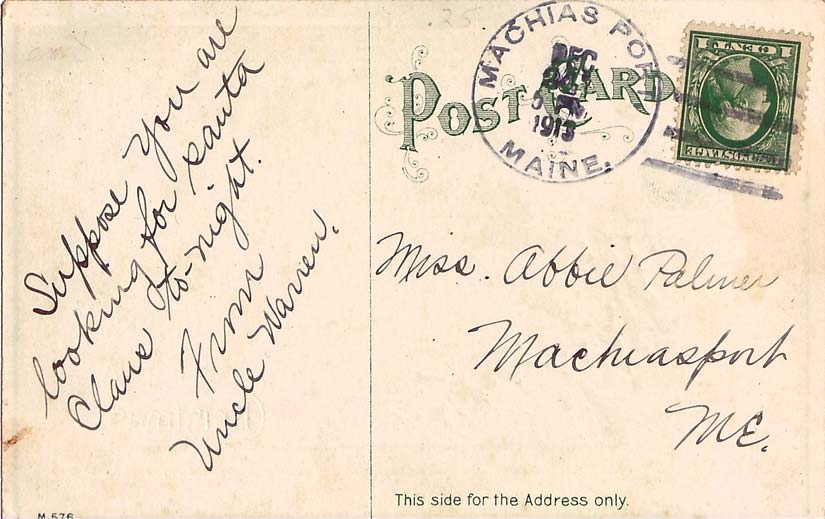 Suppose You are
looking for santa
Claus to-night.
From
Uncle Warren.
POST CARD
MACHIAS PORT
DEC
24
5 PM
1913
MAINE.
Miss. Abbie Palmer
Machiasport
ME.
This side for the Address only.
M 576
.25